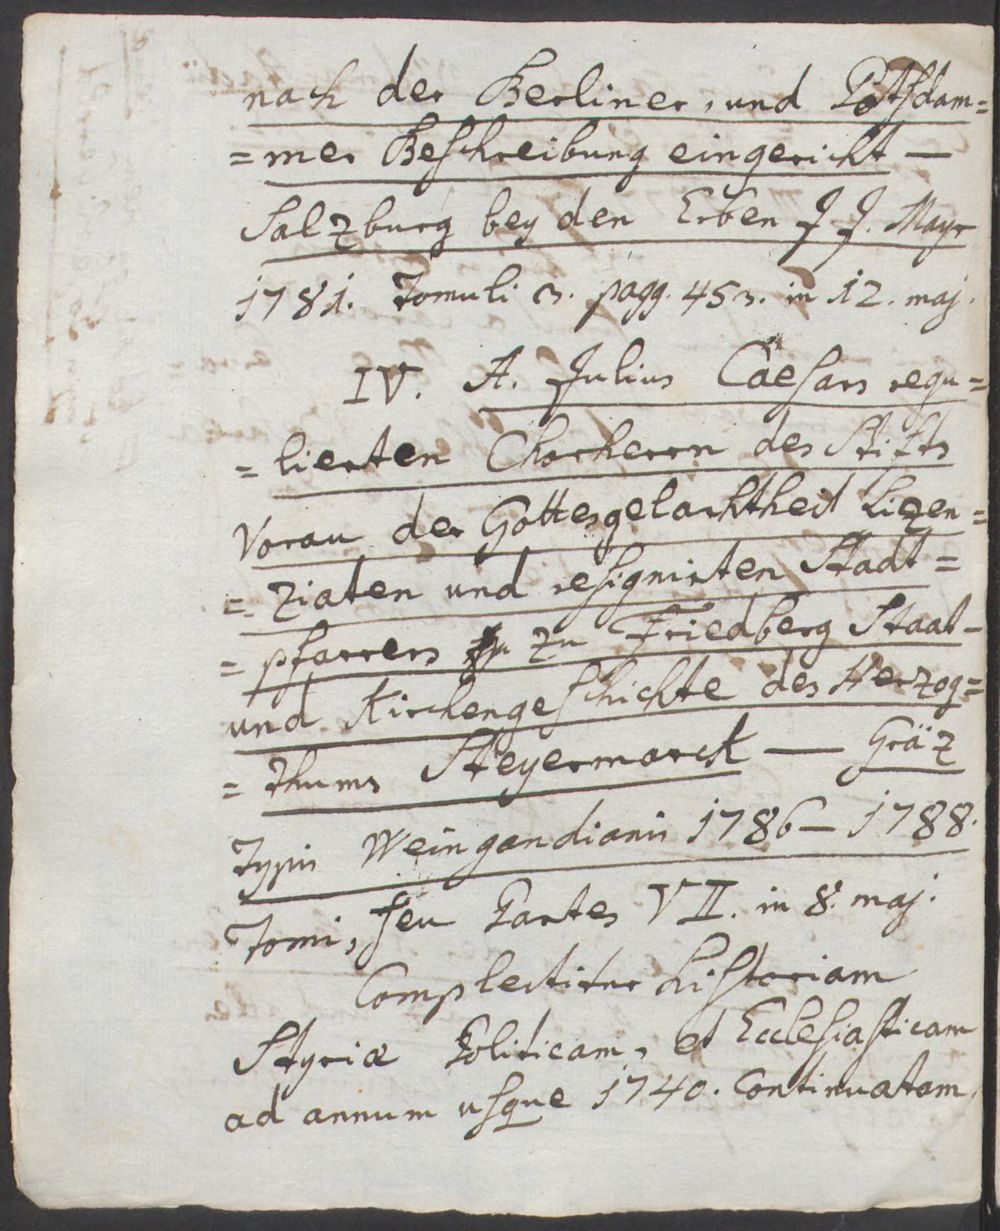 nach der Berliner, und Potsdam=
=mer Beschreibung eingericht —
Salzburg bey den Erben J. J. Mayr
1781. Tomuli 3. pagg. 453. in 12. maj.
IV. A. Julius Caesars regu=
=lierten Chorherrn des Stifts
Vorau der Gottesgelachtheit Lizen=
=ziaten und resignirten Stadt=
=pfarrers zu Friedberg Staat-
und Kirchengeschichte des Herzog=
=thums Steyermarck — Gräz
Typis Weingandianis 1786 — 1788.
Tomi, seu Partes VII. in 8. maj.
Complectitur historiam
Styriæ Politicam, et Ecclesiasticam
ad annum usque 1740. Continuatam.